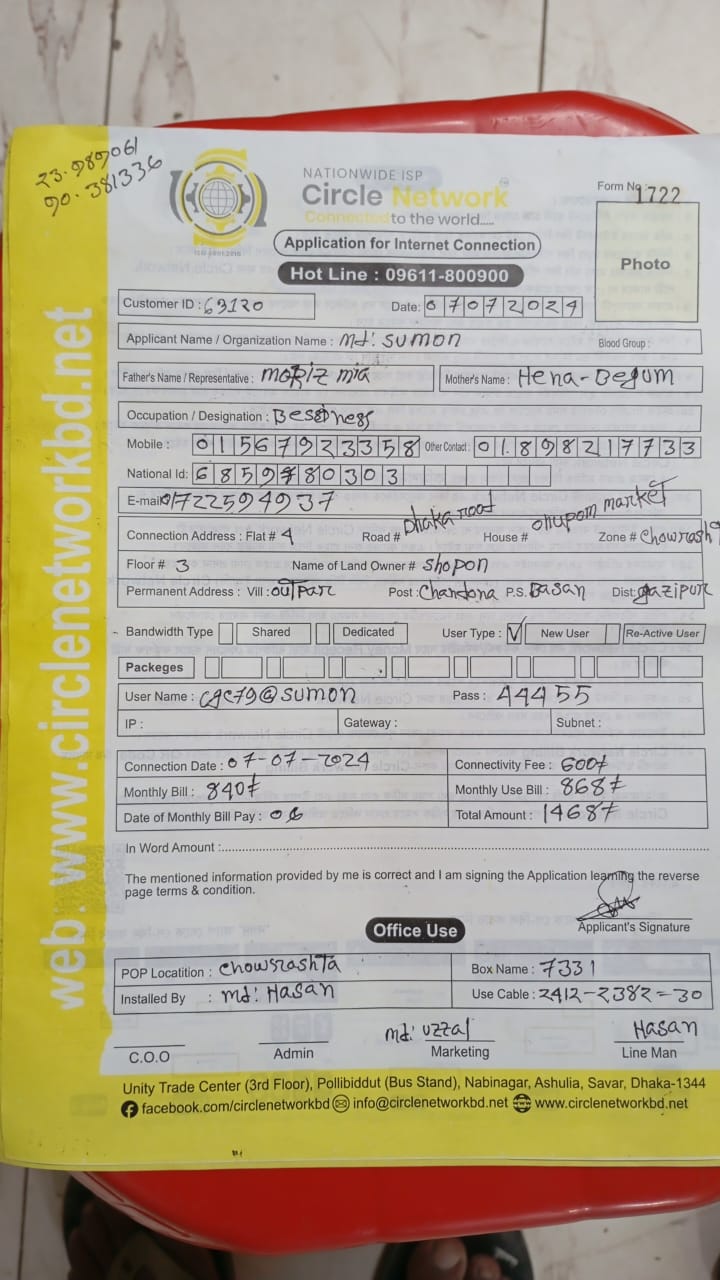 23.989061
90.381336
NATIONWIDE ISP
Circle Network
Connected to the world.....
Form No : 1722
Application for Internet Connection
Hot Line : 09611-800900
Photo
Customer ID : 63120
Date: 07072024
Applicant Name / Organization Name : Md: Sumon
Blood Group :
Father's Name / Representative : Mofiz mia
Mother's Name : Hena-Begum
Occupation / Designation :
Mobile : 01567923358 Other Contact : 01898217733
National Id: 6859780303
E-mail 01722594937
Connection Address : Flat # 4 Road # Dhaka road House # onupom market Zone # Chowrasht
Floor # 3 Name of Land Owner # Shopon
Permanent Address : Vill : outparc Post : Chandona P.S. Basan Dist: gazipur
Bandwidth Type Shared Dedicated User Type : ✓ New User Re-Active User
Packeges
User Name : cgc79@sumon Pass : 44455
IP : Gateway : Subnet :
Connection Date : 07-07-2024 Connectivity Fee : 600৳
Monthly Bill : 840৳ Monthly Use Bill : 868৳
Date of Monthly Bill Pay : 06 Total Amount : 1468৳
In Word Amount :
The mentioned information provided by me is correct and I am signing the Application learning the reverse
page terms & condition.
Applicant's Signature
Office Use
POP Locatition : Chowrashta Box Name : 7331
Installed By : Md: Hasan Use Cable : 2412-2382=30
Md: uzzal Hasan
C.O.O Admin Marketing Line Man
Unity Trade Center (3rd Floor), Pollibiddut (Bus Stand), Nabinagar, Ashulia, Savar, Dhaka-1344
facebook.com/circlenetworkbd info@circlenetworkbd.net www.circlenetworkbd.net
web. www.circlenetworkbd.net